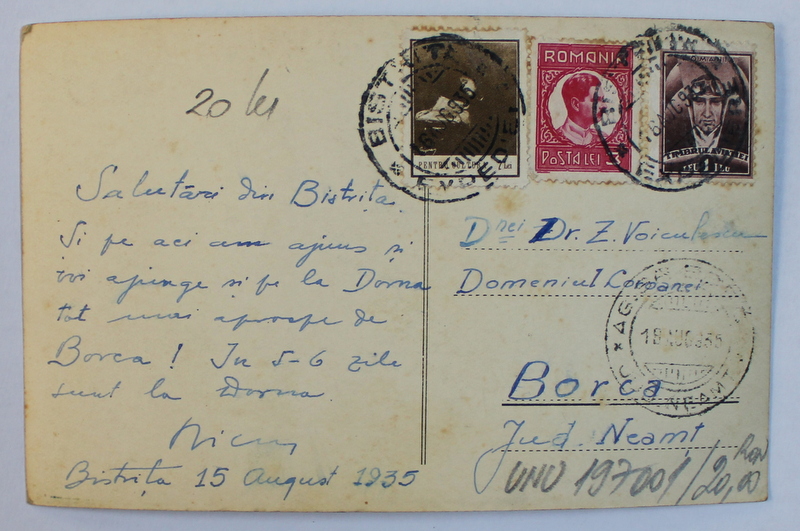 20 lei
BISTRIȚA
PENTRU CULTURA 2 Lei
ROMANIA
POSTA LEI 3
TIMBRUL AVIAȚIEI
1 LEU
Salutări din Bistrița.
Și pe aci am ajuns și
voi ajunge și pe la Dorna
tot mai aproape de
Borca! In 5-6 zile
sunt la Dorna.
Bistrița 15 August 1935
Dnei Dr. Z. Voiculescu
Domeniul Coroanei
Borca
Jud. Neamț
18 AUG 935
JUD. NEAMȚ
UNU 197001/20,00 RON